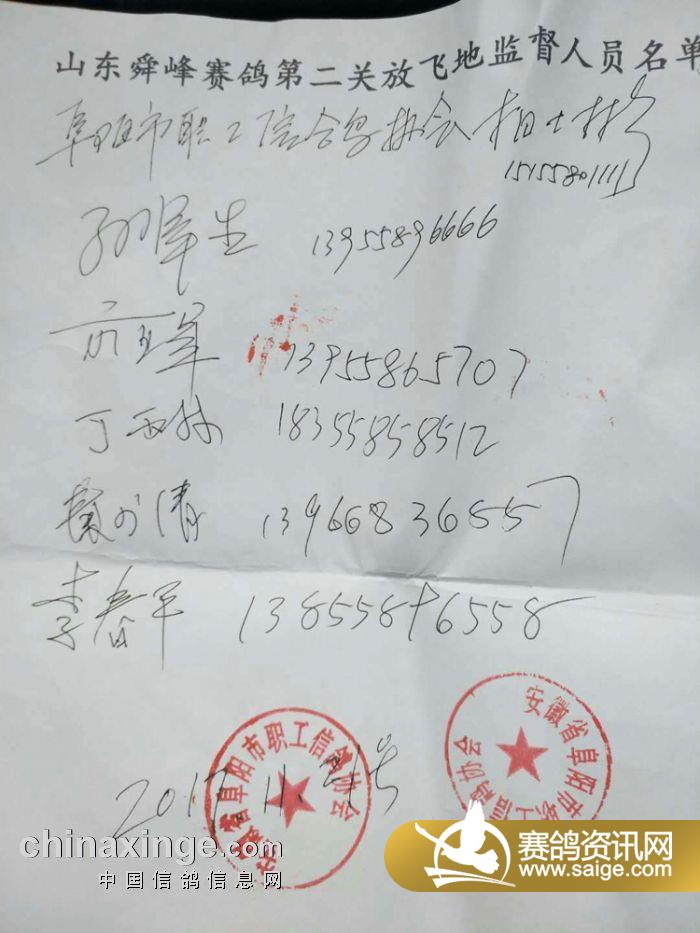 山东舜峰赛鸽第二关放飞地监督人员名单
阜阳市职工信合鸟协会 相士彬
15155801111
军生 13955896666
军 13955865707
丁西林 18355858512
清 13966836557
李春军 13855896558
安徽省阜阳市职工信鸽协会
安徽省阜阳市职工信鸽协会
2017.11.21号
chinaxinge.com
中国信鸽信息网
赛鸽资讯网
www.saige.com